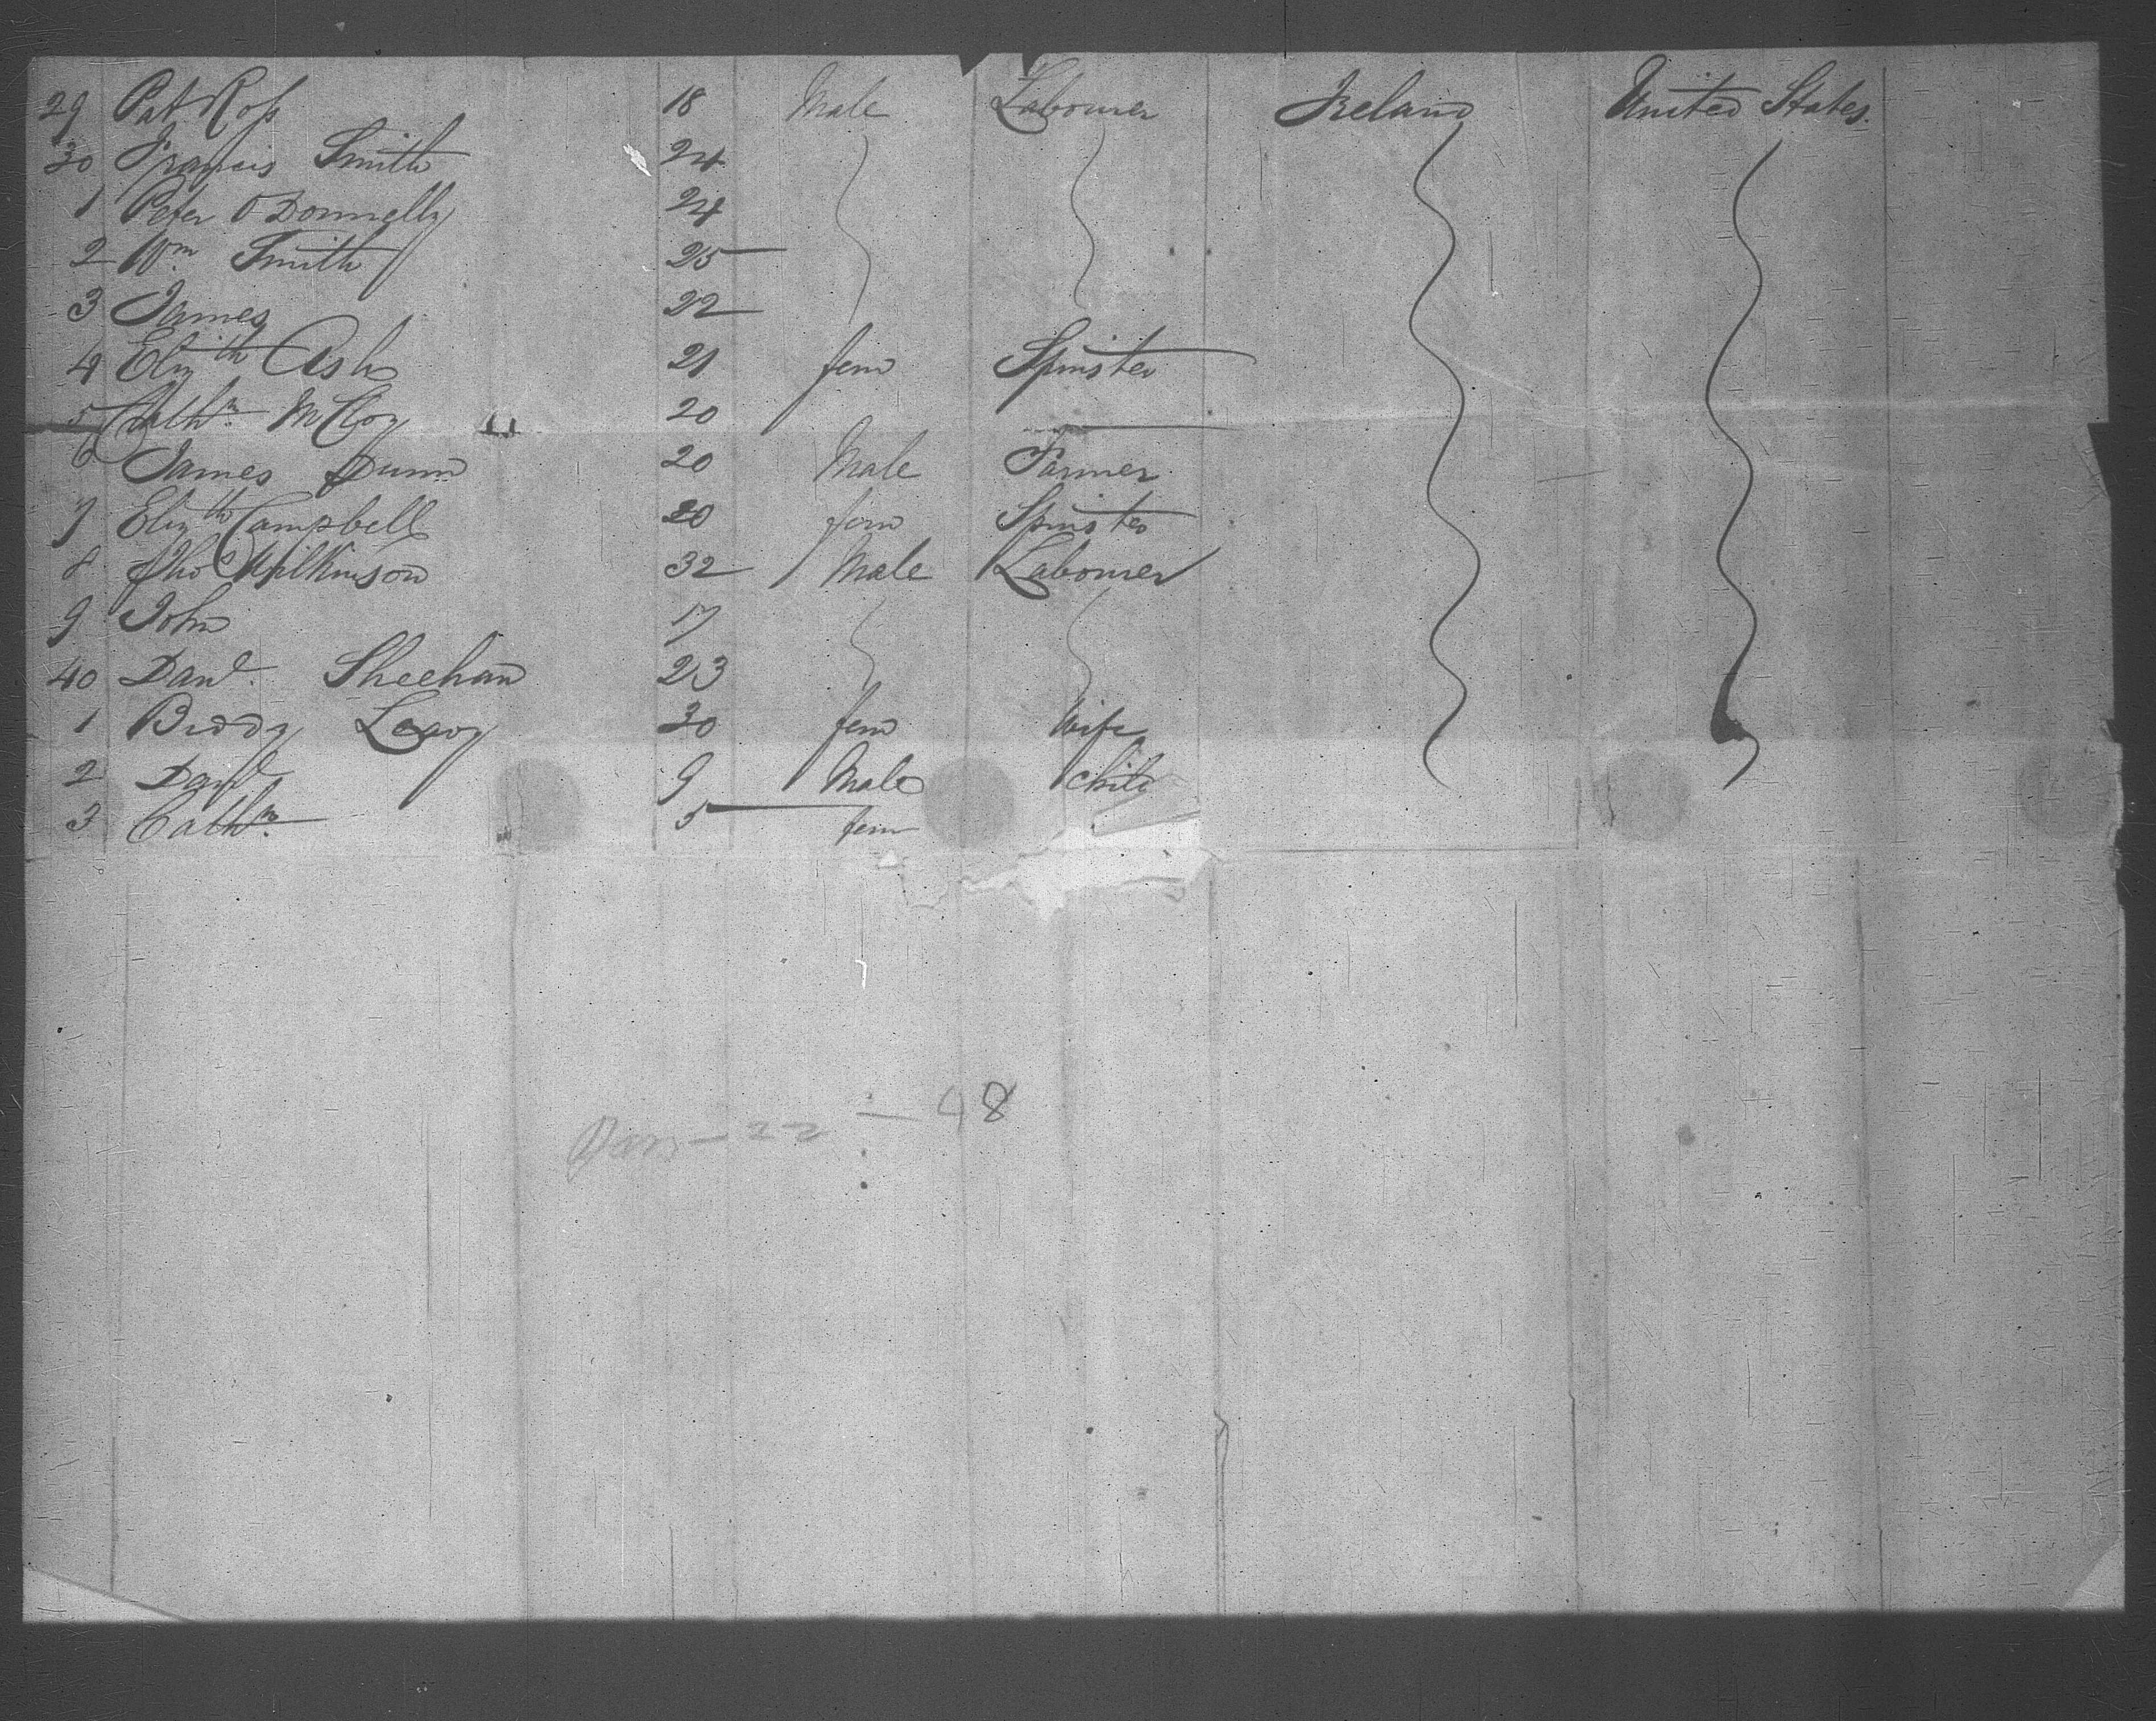 29 Pat Ross 18 Male Labourer Ireland United States.
30 Francis Smith 24
1 Peter O Donnelly 24
2 Wm Smith 25
3 James 22
4 Elizth Ash 21 fem Spinster
5 Cathn McCloy 20
6 James Dunn 20 Male Farmer
7 Elizth Campbell 20 fem Spinster
8 Thos Wilkinson 32 Male Labourer
9 John 17
40 Danl. Sheehan 23
1 Biddy Leavy 30 fem Wife
2 Danl 9 Male Child
3 Cathn. 5 fem
22 — 48